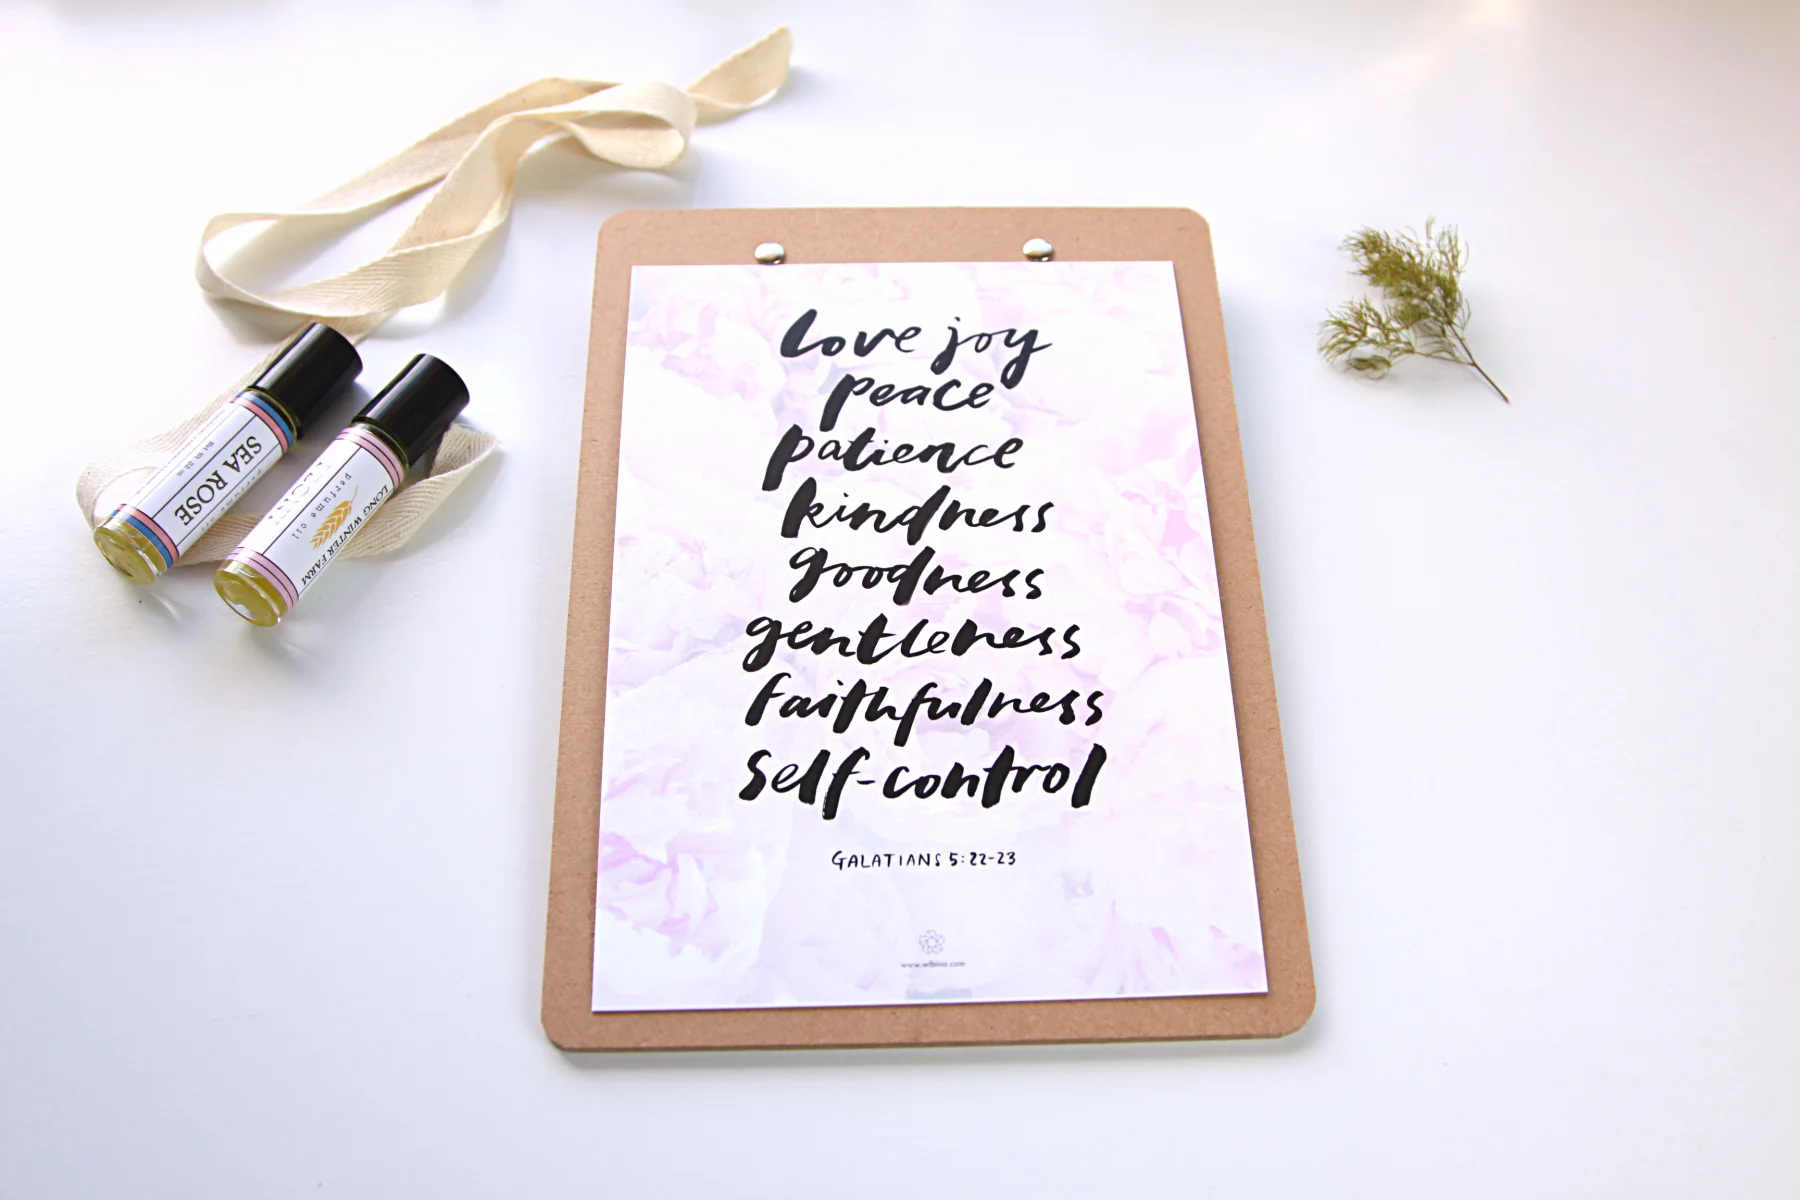 love joy
peace
patience
kindness
goodness
gentleness
faithfulness
self-control
GALATIANS 5:22-23
SEA ROSE
perfume oil
LONG WINTER FARM
perfume oil